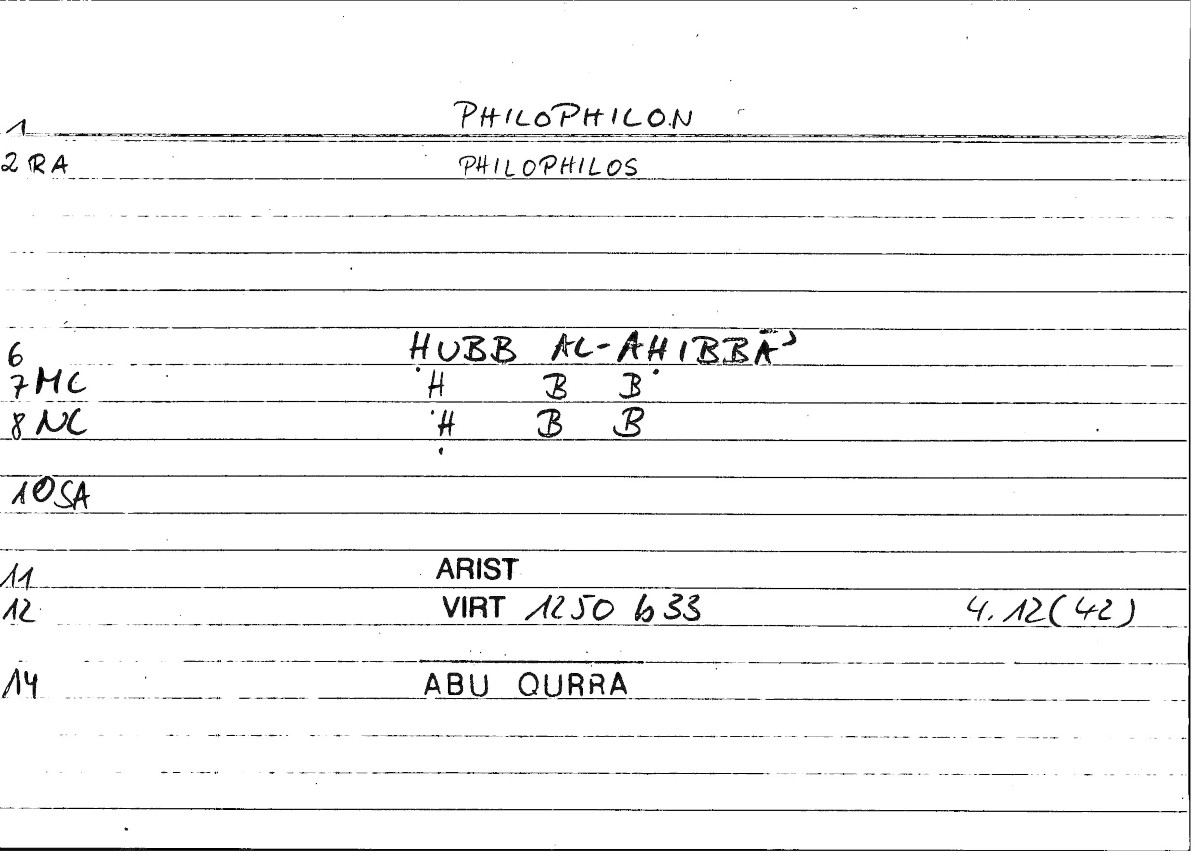 1 PHILOPHILON
2 RA PHILOPHILOS
6 HUBB AL-AHIBBĀʾ
7 MC H B B
8 NC Ḥ B B
10 SA
11 ARIST
12 VIRT 1250 b33 4.12(42)
14 ABU QURRA